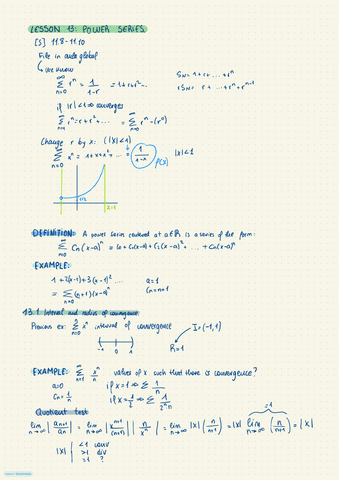 LESSON 13: POWER SERIES
[S] 11.8-11.10
File in aula global
We know
∞ Σ n=0 r^n = 1/1-r = 1+r+r²...
S_N = 1+r+...+r^N
rS_N = r+...+r^N+r^N+1
if |r|<1 ⇒ converges
Σ n=1 r^n = r+r²+... = Σ n=0 r^n - (r^0)
Change r by x: (|x|<1)
∞ Σ n=0 x^n = 1+x+x²+... = 1/1-x f(x) |x|<1
x=1
DEFINITION: A power series centered at a∈ℝ is a series of the form:
∞ Σ n=0 Cn(x-a)^n = C0+C1(x-a)+C2(x-a)²+...+Cn(x-a)^n
EXAMPLE:
1+2(x-1)+3(x-1)²... a=1
= Σ n=0 (n+1)(x-a)^n Cn=n+1
13.1 Interval and radius of convergence
Previous ex: ∞ Σ n=0 x^n interval of convergence I=(-1,1)
-1 0 1 R=1
EXAMPLE: ∞ Σ n=1 x^n/n values of x such that there is convergence?
a=0 if x=1 ⇒ Σ 1/n
Cn=1/n if x=1/2 ⇒ Σ 1/2^n n
Quotient test =1
lim n→∞ |an+1/an| = lim n→∞ |x^n+1/n+1| |n/x^n| = lim n→∞ |x| (n/n+1) = |x| lim n→∞ (n/n+1) = |x|
|x| <1 conv
>1 div
=1 ?